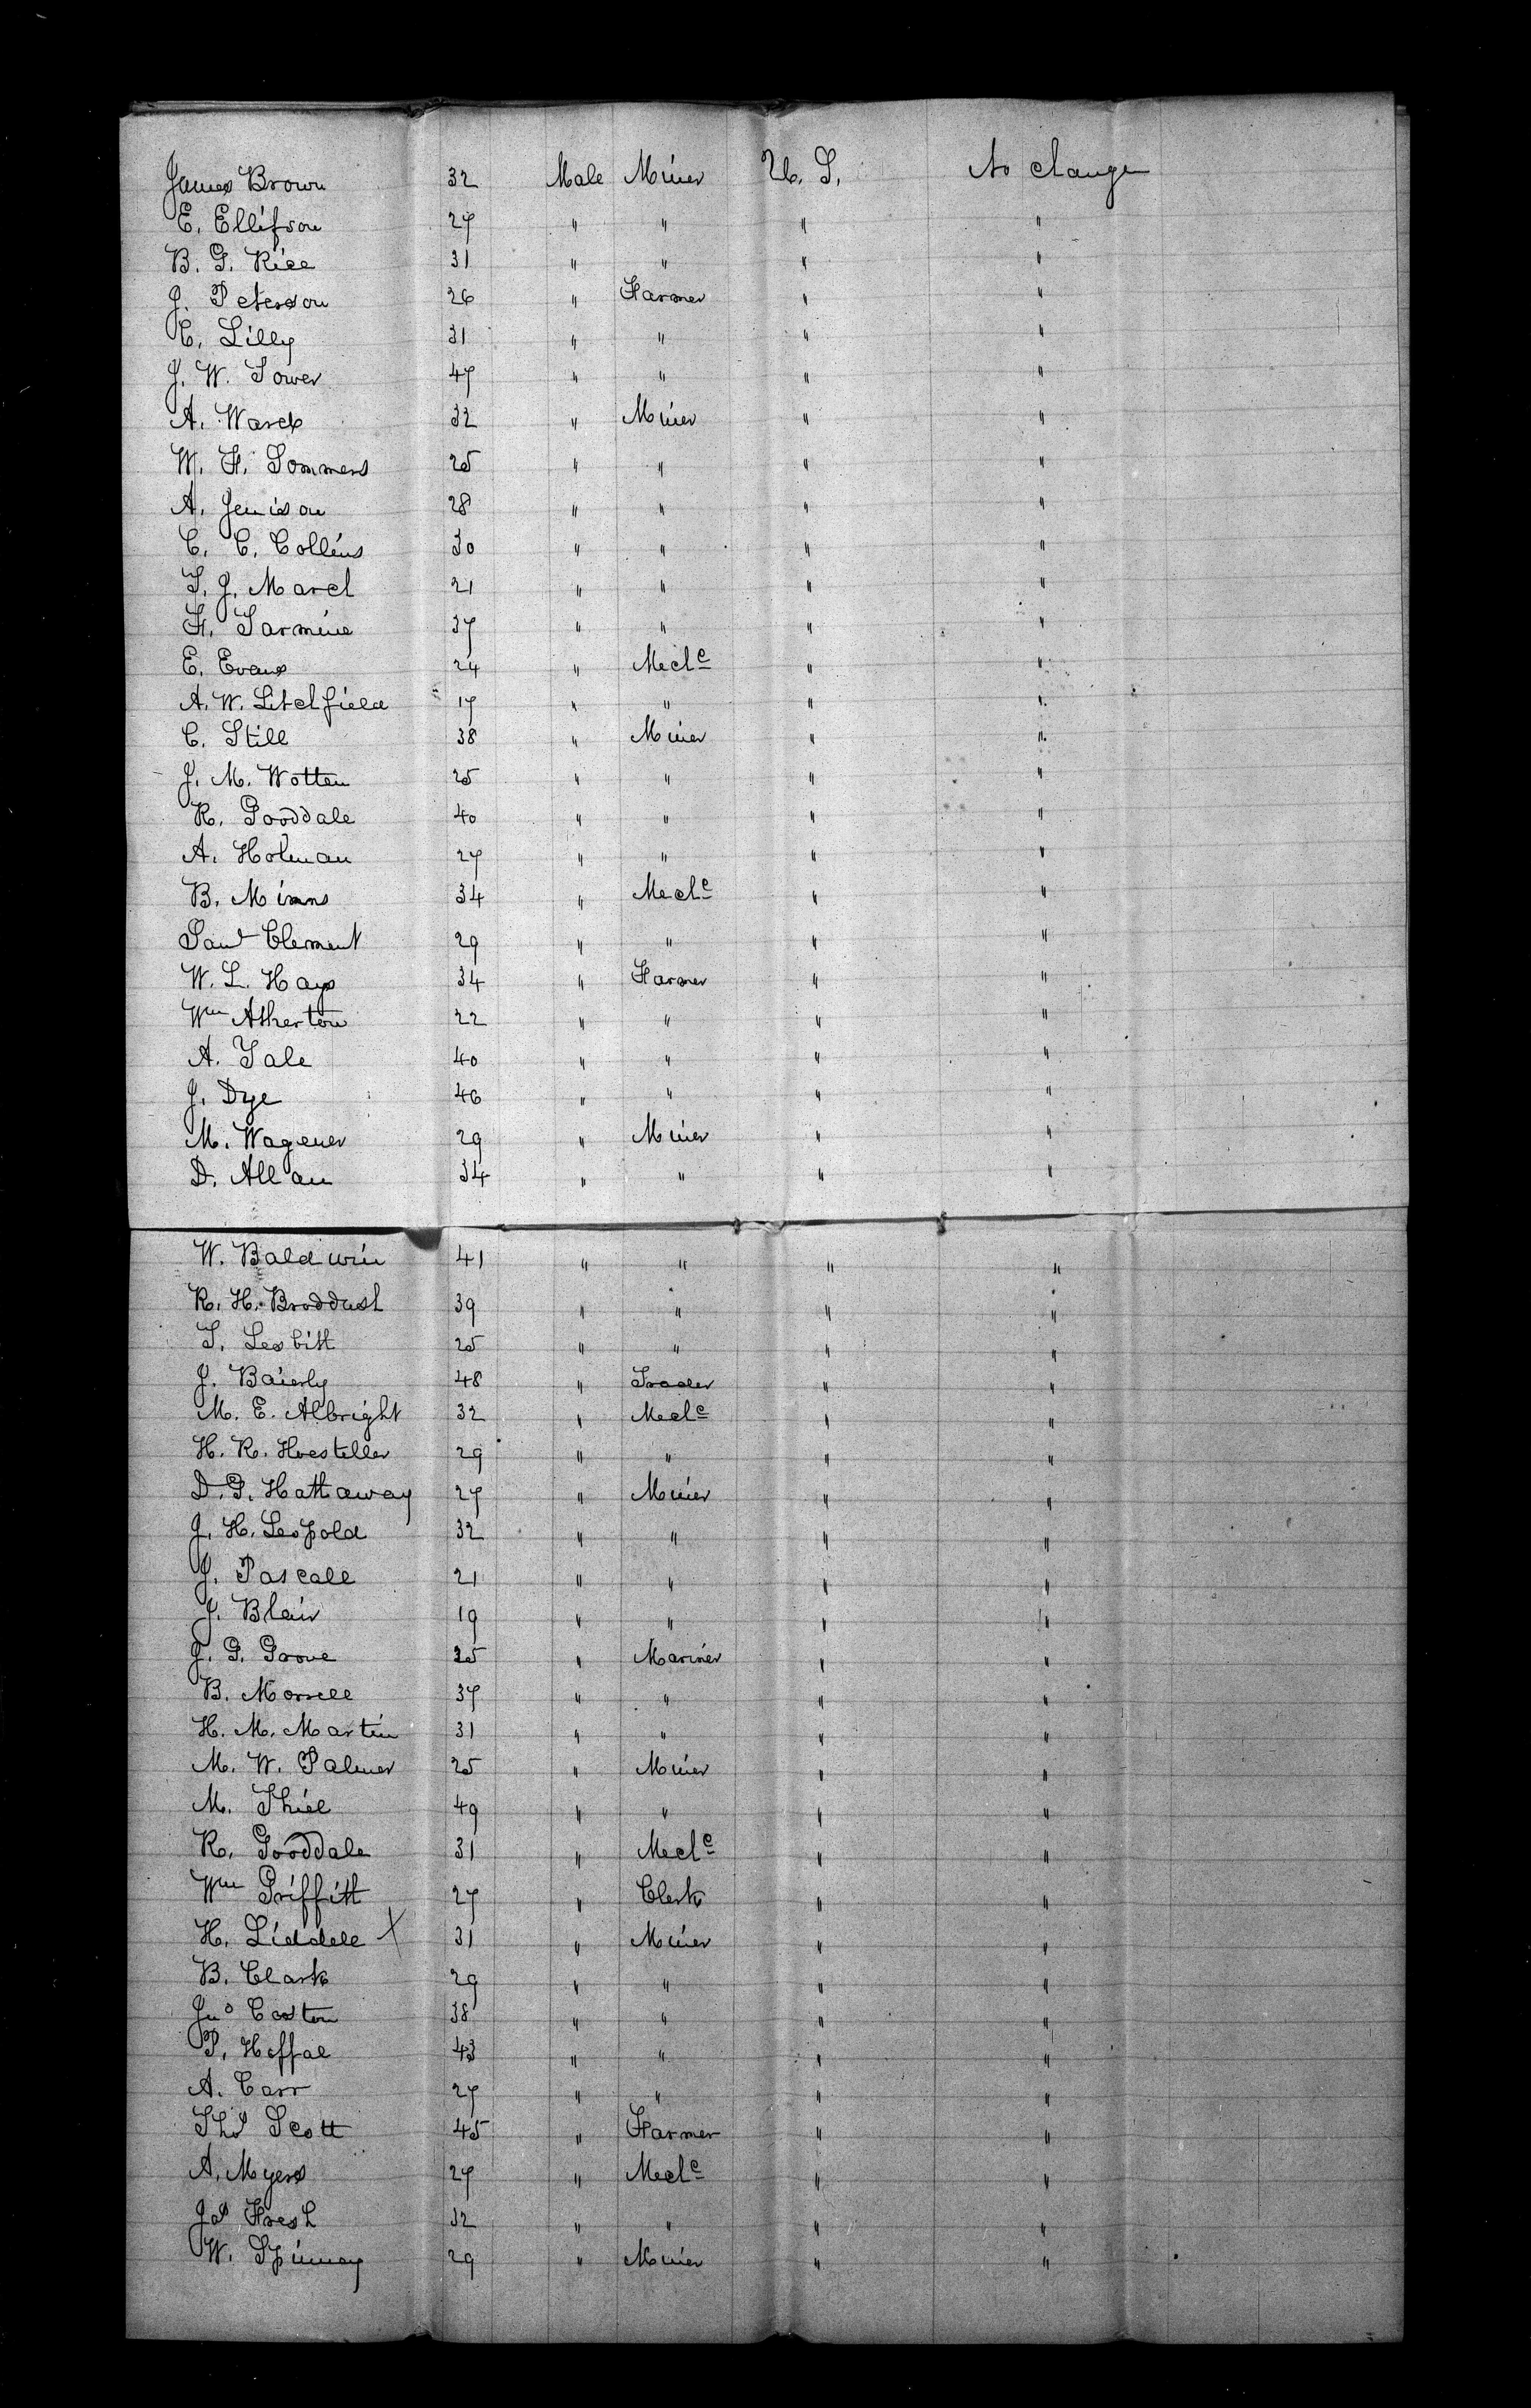 James Brown 32 Male Miner U. S. No change
E. Ellifson 27 " " " "
B. G. Rice 31 " " " "
J. Peterson 26 " Farmer " "
C. Lilly 31 " " " "
J. W. Sower 47 " " " "
A. Warch 32 " Miner " "
W. F. Sommers 25 " " " "
A. Jenison 28 " " " "
C. C. Collins 30 " " " "
T. J. March 21 " " " "
F. Jarmine 37 " " " "
E. Evans 24 " Mechc " "
A. W. Litchfield 17 " " " "
C. Still 38 " Miner " "
J. M. Wotten 25 " " " "
R. Gooddale 40 " " " "
A. Holman 27 " " " "
B. Minns 34 " Mechc " "
Saml Clement 29 " " " "
W. L. Hays 34 " Farmer " "
Wm Atherton 22 " " " "
A. Tale 40 " " " "
J. Dye 46 " " " "
M. Wagener 29 " Miner " "
D. Allan 34 " " " "
W. Baldwin 41 " " " "
R. H. Broddush 39 " " " "
T. Lesbitt 25 " " " "
J. Baierly 48 " Trader " "
M. E. Albright 32 " Mechc " "
H. R. Hoesteller 29 " " " "
D. G. Hathaway 27 " Miner " "
J. H. Leopold 32 " " " "
J. Pascall 21 " " " "
J. Blair 19 " " " "
J. G. Grove 25 " Mariner " "
B. Morrell 37 " " " "
H. M. Martin 31 " " " "
M. W. Palmer 25 " Miner " "
M. Thiel 49 " " " "
R. Gooddale 31 " Mechc " "
Wm Griffith 27 " Clerk " "
H. Liddell X 31 " Miner " "
B. Clark 29 " " " "
Jno Caston 38 " " " "
P. Heffal 43 " " " "
A. Carr 27 " " " "
Thos Scott 45 " Farmer " "
A. Myers 27 " Mechc " "
Jas Fresh 32 " " " "
W. Spinney 29 " Miner " "